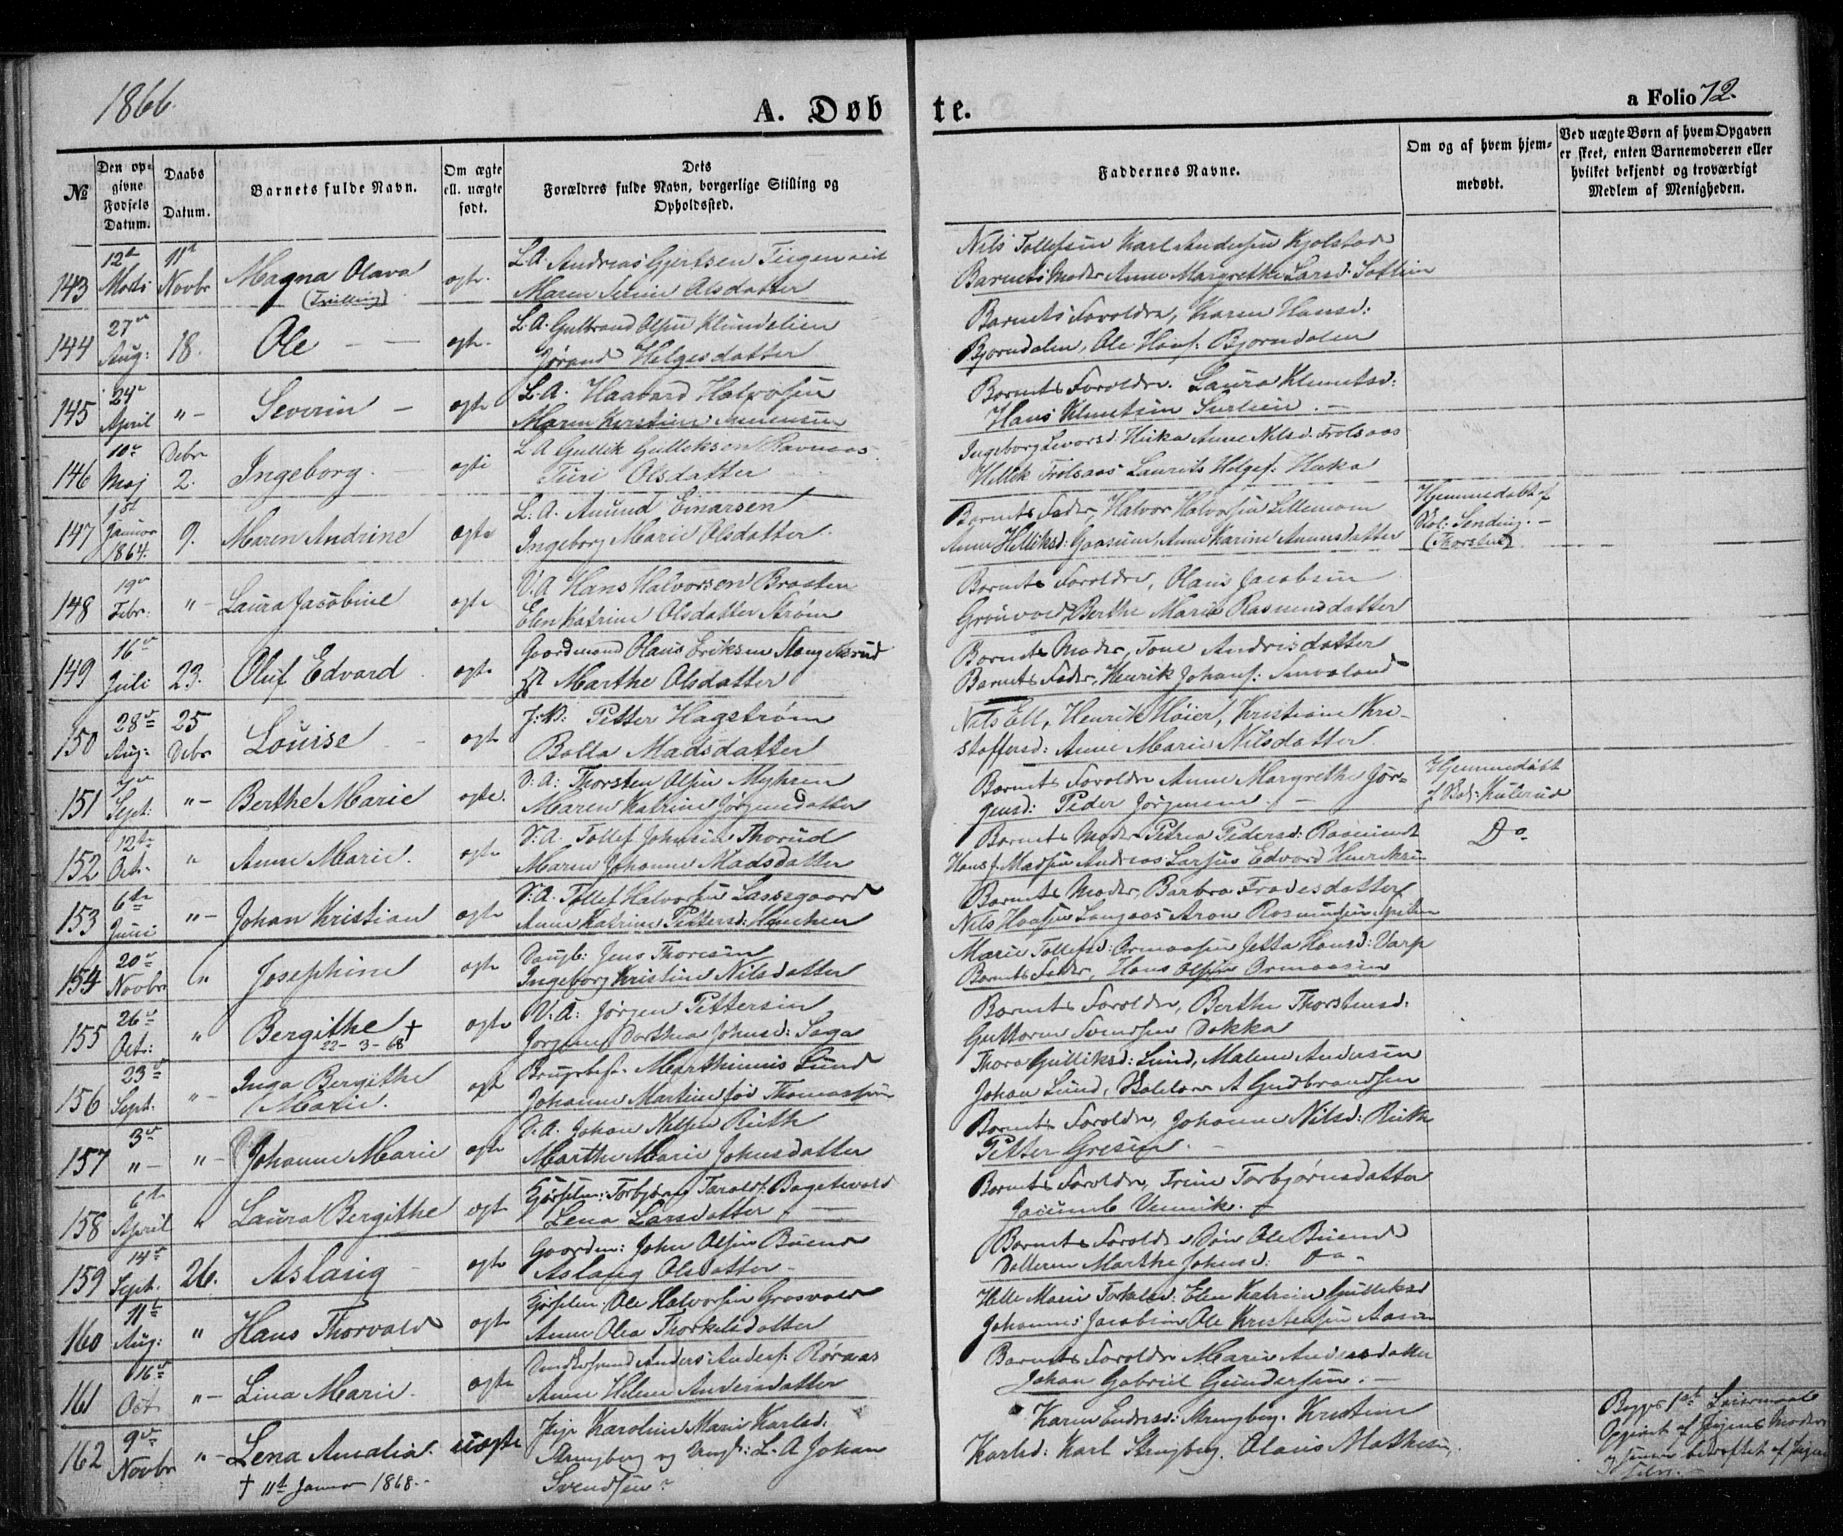 1866.
A. Døbte.
a Folio 72.
№
Den opgivne Fødsels Datum.
Daabs Datum.
Barnets fulde Navn.
Om ægte ell. uægte født.
Dets Forældres fulde Navn, borgerlige Stilling og Opholdssted.
Faddernes Navne.
Om og af hvem hjemmedøbt.
Ved uægte Børn af hvem Opgaven er skeet, enten Barnemoderen eller hvilket bekjendt og troværdigt Medlem af Menigheden.
143 12te Marts 11te Novbr Magna Olava (Tvilling) ægte. L.A. Andreas Gjertsen Tingen
Maren Olsdatter
Nils Tollefsen Karl Andersen Kjolstad
Barnets Moder Anne Margrethe Larsd:
144 27de Aug: 18. Ole ægte. L.A. Gulbrand Olsen Klundelien
Jørand Helgesdatter
Barnets Forældre, Karen Hansd:
Bjørndalen, Ole Hans: Bjørndalen
145 24de April "- Severin - ægte L.A. Haavard Halvorsen
Maren Kirstine
Barnets Forældre. Laura Klemetsd:
Hans Klemetsen
146 10de Maj Debr 2. Ingeborg. ægte L.A. Gullik Gulliksen Ravnaas
Turi Olsdatter
Ingeborg Anne Nilsd. Trolsaas
Trolsaas Laurits Helges: Huka
147 1ste Januar 1864. 9. Maren Andrine ægte L.A. Amund Einarsen
Ingeborg Marie Olsdatter.
Barnets Fader, Halvor Halvorsen Lillemoen
Anne Helliksd: Anne Karine
Hjemmedøbt af
Sending. -
(Thorsten)
148 19de Febr. "- Laura Jacobine ægte V.A Hans Halvorsen Braaten
Elen Katrine Olsdatter Strøm
Barnets Forældre, Olaus Jacobsen
Grønvold, Berthe Marie Rasmusdatter
149 16de Juli 23. Oluf Edvard ægte Gaardmand Olaus Eriksen Stengelsrud
Marthe Olsdatter
Barnets Moder, Tone Andrisdatter
Barnets Fader, Henrik Johans:
150 28de Aug: 25 Debr Louise ægte Petter Hagstrøm
Bolla Madsdatter
Nils Ell, Henrik Høier, Kristiane Kri-
stoffersd: Anne Marie Nilsdatter
151 Sept: "- Berthe Marie ægte. V.A: Thorsten Olsen Myhren
Maren Katrine Jørgensdatter
Barnets Forældre Anne Margrethe Jør-
gensd: Peder Jørgensen. -
Hjemmedøbt
Kulerud
152 12te Oct. " Anne Marie. ægte V.A. Tollef Johnsen Thorud
Maren Johanne Madsdatter
Barnets Moder Petrea Pedersd:
Hans J. Madsen Andreas Larsen Edvard Henriksen
Do
153 6te Juni "- Johan Kristian ægte V.A. Tollef Halvorsen Lassegaard
Anne Katrine Pettersd: Hanchen
Barnets Moder, Barbra Frodesdatter
Nils Hansen Langaas Aron Rosmundsen
154 20de Novbr " Josephine ægte Jens Thoresen
Ingeborg Kirstine Nilsdatter
Marie Tollefsd: Ormaasen Jetta Hansd: Varp
Barnets Fader, Hans Olsen Ormaasen
155 26de Oct: " Bergithe ægte V.A: Jørgen Pettersen
22-3-68 †
Dorthea Johnsd: Saga
Barnets Forældre, Berthe Thorstensd:
Guttorm Svendsen Dokka
156 23de Sept. "- Inga Bergithe Marie. ægte Marthinius Lund
Johanne Martine fød Thomassen
Thora Gulliksd: Lund, Malene Andersen
Johan Lund, A Gudbrandsen
157 3de "- "- Johanne Marie ægte V.A. Johan Nilsen Ruth
Marthe Marie Johnsdatter
Barnets Forældre, Johanne Nilsd: Ruth
Petter Gresen -
158 6te April " Laura Bergithe ægte Torbjørn Taralds:
Lena Larsdatter. -
Barnets Forældre, Trine Torbjørnsdatter
Vennik.
159 14de Sept. 26. Aslaug ægte Gaardm: John Olsen Buend
Aslaug Olsdatter -
Barnets Forældre Søn Ole Buend
Datteren Marthe Johnsd: Do
160 11te Aug: " Hans Thorvald ægte Ole Halvorsen Grosvold
Anne Olea Thorkelsdatter
Helle Marie Torkelsd: Elen Katrine Gulliksd
Johannes Jacobsen Ole Kristensen Aasen
161 16de Oct "- Lina Marie. ægte Anders Anders: Røraas
Anne Helene Andersdatter
Barnets Forældre Marie Andersdatter
Johan Gabriel Gundersen. -
162 9de Novbr "- Lena Amalia. uægte Pige Karoline Marie Karlsd:
Strengberg og Ungk: L.A Johan
Svendsen
† 11te Januar 1868. -
Karen Endresd: Strengberg. Kristine
Karlsd: Karl Strengberg. Olaus Mathisen
Begges 1ste Leiermaal
Opgivet af Pigens Moder
og senere bekræftet af Pigen
selv. -